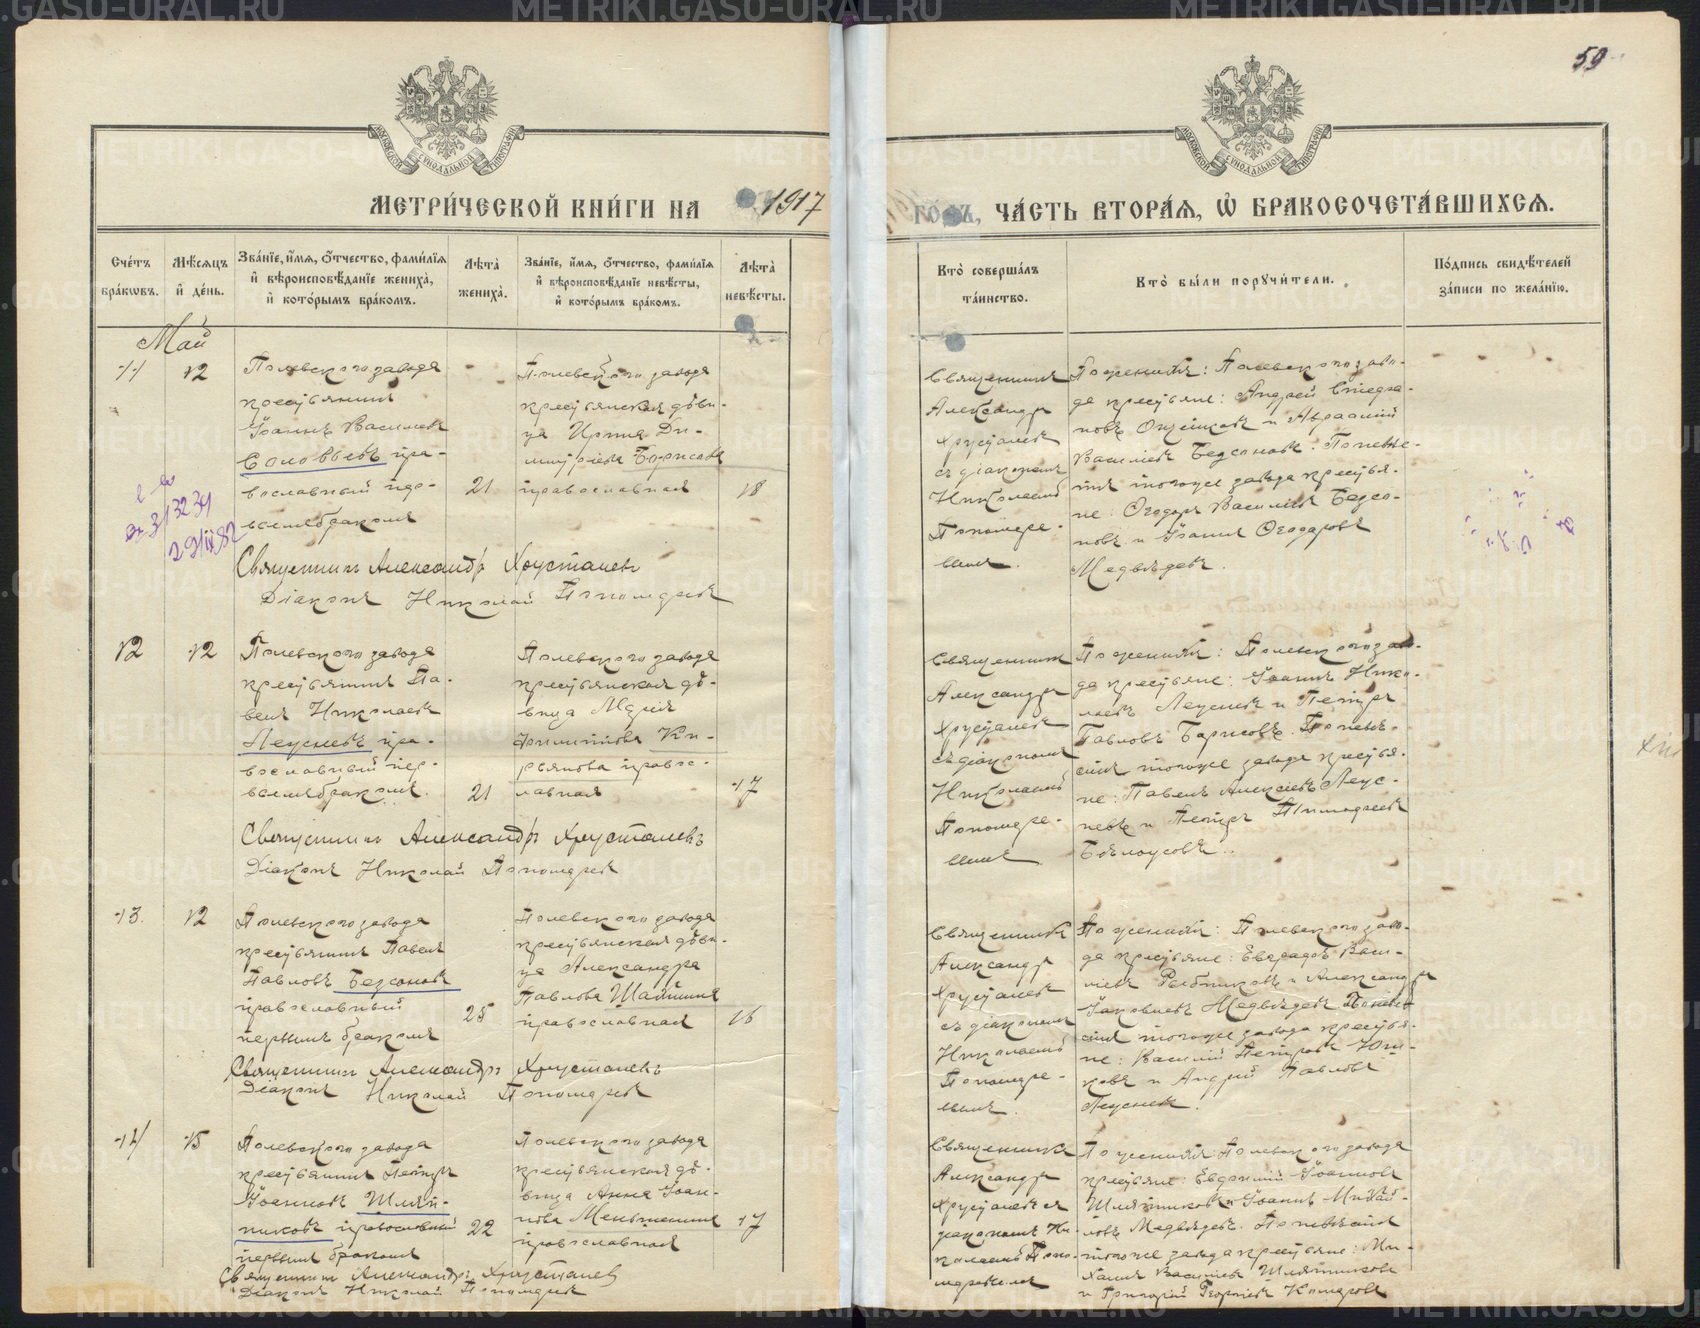 59
МЕТРИ́ЧЕСКОЙ КНИ́ГИ НА 1917
ГО́ДЪ, ЧА́СТЬ ВТОРА́Я, Ѽ БРАКОСОЧЕТА́ВШИХСЯ.
Сче́тъ бра́кѡвъ.
Мѣ́сяцъ и҆ де́нь.
Зва́нїе, и҆́мя, ѻ҆́тчество, фами́лїя
и҆ вѣроисповѣ́данїе жениха̀,
и҆ кото́рымъ бра́комъ.
Лѣ́та жениха̀.
Зва́нїе, и҆́мя, ѻ҆́тчество, фами́лїя
и҆ вѣроисповѣ́данїе невѣ́сты,
и҆ кото́рымъ бра́комъ.
Лѣ́та невѣ́сты.
Кто̀ соверша́лъ
та́инство.
Кто̀ бы́ли поручи́тели.
По́дпись свидѣ́телей
за́писи по жела́нїю.
Май
11
12
Полевскаго завода
крестьянинъ
Іоаннъ Васильевъ
Соловьевъ пра-
вославный пер-
вымъ бракомъ
21
Полевского завода
крестьянская дѣви-
ца Ирина Ди-
митріева Борисова
православная
18
Священникъ
Александръ
Хрусталевъ
съ діакономъ
Николаемъ
Пономаре-
вымъ.
По женихѣ: Полевского заво-
да крестьяне: Андрей Стефа-
новъ и Авраамій
Васильевъ Безсоновъ. По невѣс-
тѣ того же завода крестья-
не: Ѳеодоръ Васильевъ Безсо-
новъ и Іоаннъ Ѳеодоровъ
Медвѣдевъ.
Священникъ Александръ Хрусталевъ
Діаконъ Николай Пономаревъ
12
12
Полевского завода
крестьянинъ Па-
велъ Николаевъ
Леусневъ пра-
вославный пер-
вымъ бракомъ.
21
Полевского завода
крестьянская дѣ-
вица Марія
Филиппова Ки-
рьянова правос-
лавная
17
Священникъ
Александръ
Хрусталевъ
съ діакономъ
Николаемъ
Пономаре-
вымъ
По женихѣ: Полевского заво-
да крестьяне: Іоаннъ Нико-
лаевъ Леусневъ и Петръ
Павловъ Борисовъ. По невѣ-
стѣ того же завода крестья-
не: Павелъ Алексѣевъ Леус-
невъ и Петръ Тимофеевъ
Бѣлоусовъ.
Священникъ Александръ Хрусталевъ
Діаконъ Николай Пономаревъ
13.
12
Полевского завода
крестьянинъ Павелъ
Павловъ Безсоновъ
православный
первымъ бракомъ
25
Полевского завода
крестьянская дѣви-
ца Александра
Павлова
православная
16
Священникъ
Александръ
Хрусталевъ
съ діакономъ
Николаемъ
Пономаре-
вымъ.
По женихѣ: Полевского заво-
да крестьяне: Васи-
льевъ и Александръ
Іаковлевъ Медвѣдевъ По невѣ-
стѣ того же завода крестья-
не: Василій Петровъ Юш-
ковъ и Андрей Павловъ
Леусневъ.
Священникъ Александръ Хрусталевъ
Діаконъ Николай Пономаревъ
14
15
Полевского завода
крестьянинъ Петръ
Іоанновъ Шляп-
никовъ православный
первымъ бракомъ
22
Полевского завода
крестьянская дѣ-
вица Анна Іоан-
нова Меньшенина
православная
17
Священникъ
Александръ
Хрусталевъ съ
діакономъ Ни-
колаемъ Поно-
маревымъ
По женихѣ: Полевского завода
крестьяне: Евфимій Іоанновъ
Шляпниковъ и Іоаннъ Михай-
ловъ Медвѣдевъ. По невѣстѣ
того же завода крестьяне: Ми-
хаилъ Васильевъ Шляпниковъ
и Григорій Георгіевъ Комаровъ
Священникъ Александръ Хрусталевъ
Діаконъ Николай Пономаревъ
METRIKI.GASO-URAL.RU